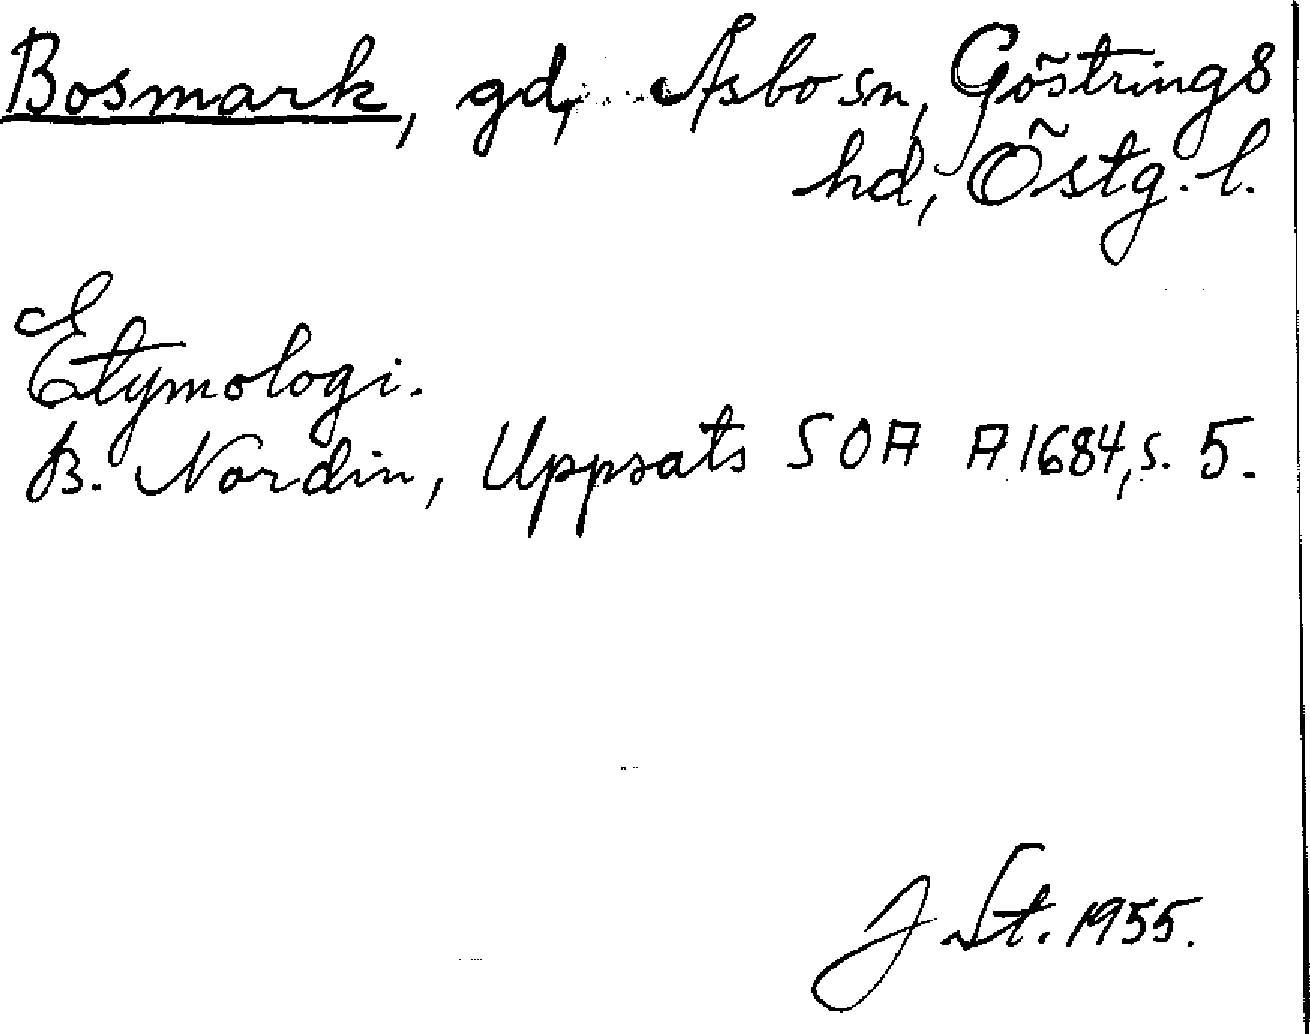 Bosmark, gd, Åsbo sn, Göstrings
hd, Östg. l.
Etymologi.
B. Nordin, Uppsats SOA A1684, s. 5.
J St. 1955.